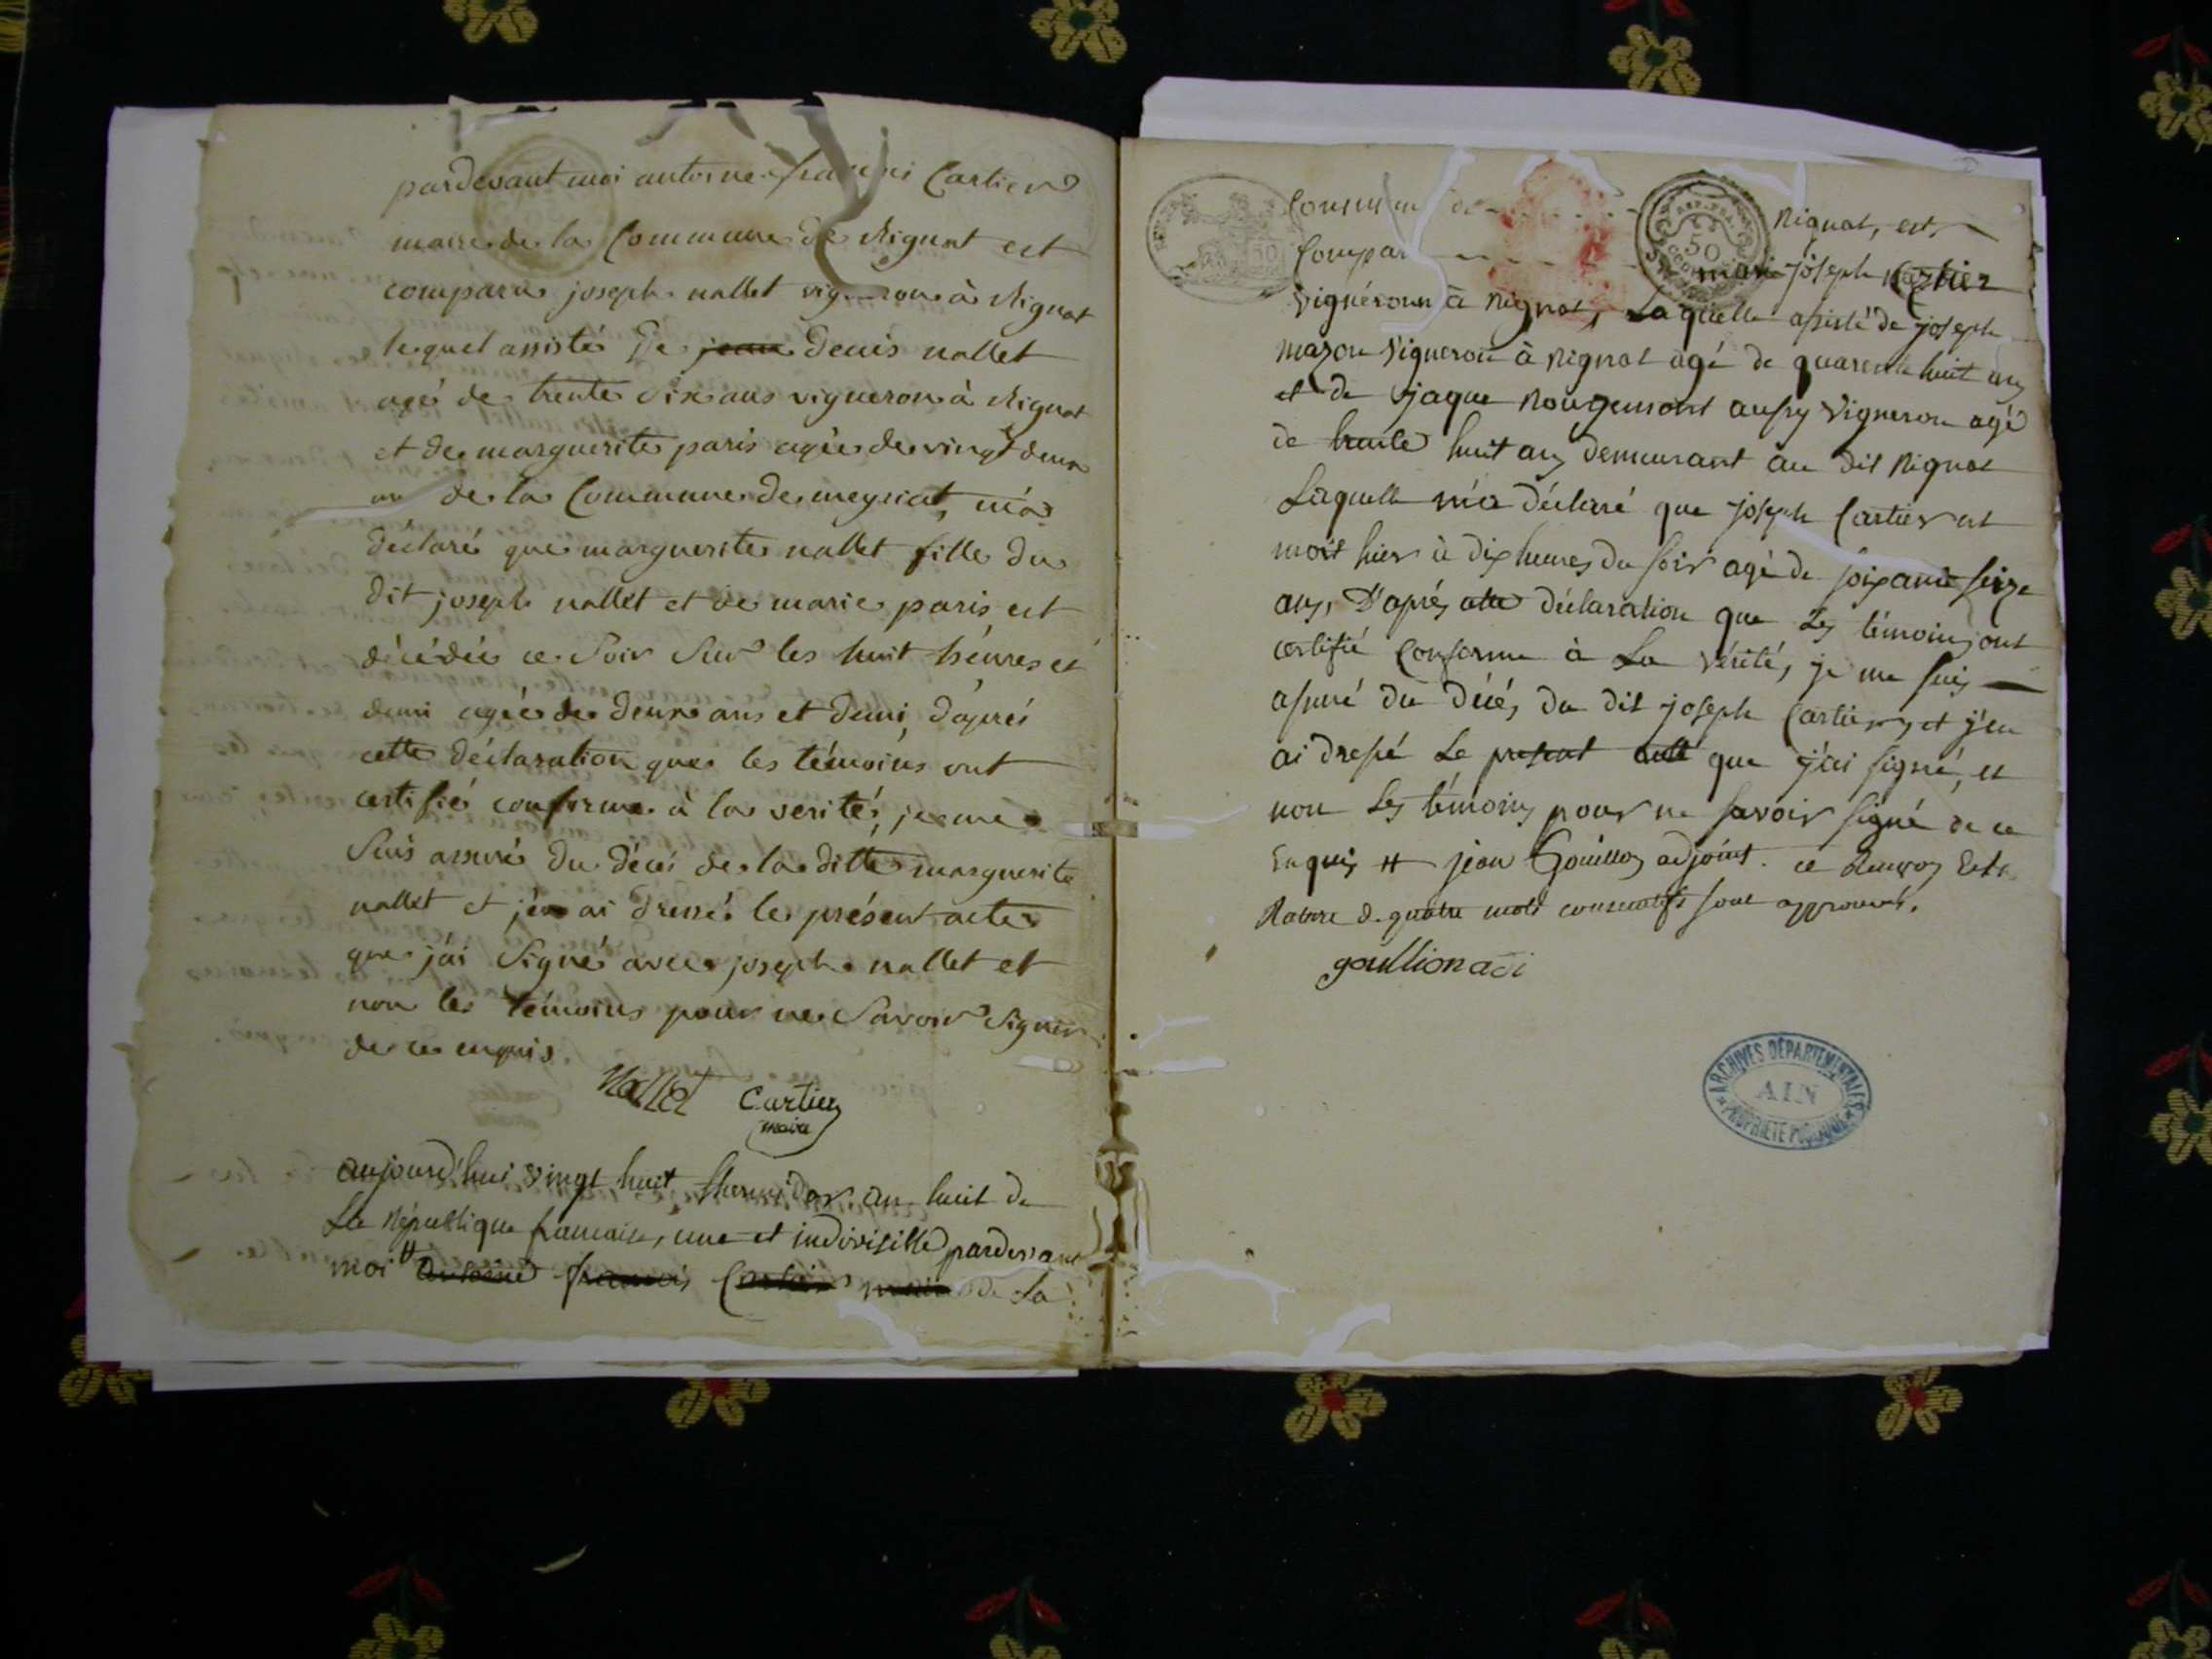 pardevant moi antoine francois Cartier
maire de la Commune de Rignat est
comparu joseph nallet vigneron à Rignat
lequel assisté de jean denis nallet
agé de trente six ans vigneron à Rignat
et de marguerite paris agée de vingt deux
an de la Commune de meyriat, m'a
déclaré que marguerite nallet fille du
dit joseph nallet et de marie paris, est
décédée ce soir sur les huit heures et
demi agée de deux ans et demi, d'aprés
cette déclaration que les témoins ont
certifié conforme à la verité, je me
suis assuré du décés de la ditte marguerite
nallet et j'en ai dressé le présent acte
que j'ai signé avec joseph nallet et
non les témoins pour ne savoir signer
de ce enquis.
Nallet Cartier
maire
aujourd'hui vingt huit thermidor an huit de
La République francaise, une et indivisible pardevant
moi # antoine francois Cartier maire de La
Commune de Rignat, est
Compar joseph
vigneron à Rignat, Laquelle assisté de joseph
mazon vigneron à Rignat agé de quarente huit ans
et de jaque Rougemont aussy vigneron agé
de trente huit ans demeurant au dit Rignat
Laquelle m'a déclaré que joseph Cartier est
mort hier à dix heures du soir agé de soixante seize
ans, D'aprés cette déclaration que Les témoins ont
certifié Conforme à La vérité, je me suis
assuré du décés du dit joseph Cartier, et j'en
ai dressé Le present acte que j'ai signé, et
non Les témoins pour ne savoir signé de ce
Enquis # jean Gouillon adjoint. ce Renvoy Et la
Rature de quatre mots consecutifs sont approuvés.
goullion adi
REP. FRA.
50
CENT
ARCHIVES DÉPARTEMENTALES
AIN
PROPRIÉTÉ PUBLIQUE